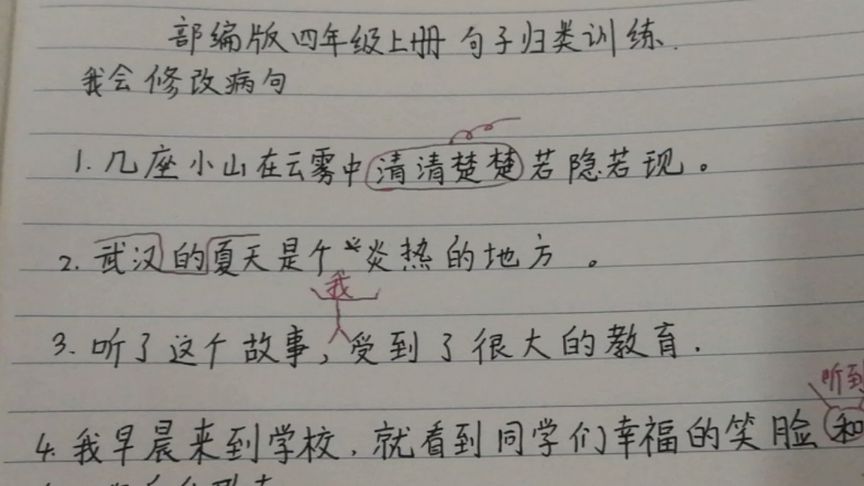 部编版四年级上册 句子归类训练.
我会修改病句
1. 几座小山在云雾中清清楚楚若隐若现。
2. 武汉的夏天是个炎热的地方。
我
3. 听了这个故事,受到了很大的教育.
听到
4. 我早晨来到学校,就看到同学们幸福的笑脸和